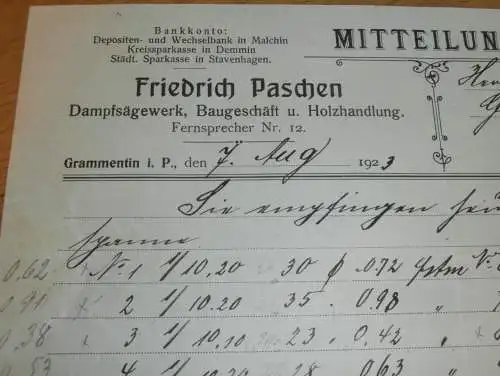 Bankkonto:
Depositen- und Wechselbank in Malchin
Kreissparkasse in Demmin
Städt. Sparkasse in Stavenhagen.
MITTEILUN
Friedrich Paschen
Dampfsägewerk, Baugeschäft u. Holzhandlung.
Fernsprecher Nr. 12.
Grammentin i. P., den 7. Aug 1923
Sie empfingen
0.62 No 1 1/10,20 30 ϕ 0.72 fstm No
0.91 2 1/10.20 35. 0.98 "
0.38 3 1/10,10 23 0,42 "
0.53 4 1/10.20 28 0.63 "